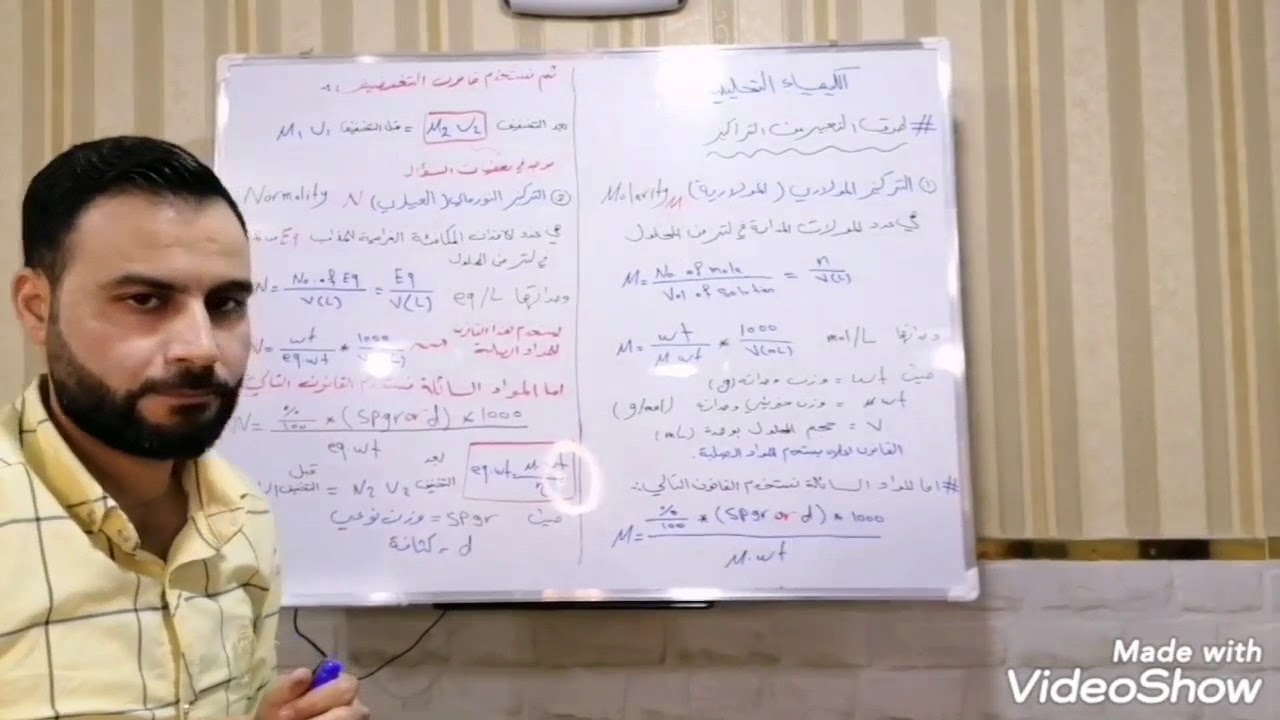 الكيمياء التحليلية
# طرق التعبير عن التراكيز
① التركيز المولاري (المولارية) Molarity M
هي عدد المولات المذابة في لتر من المحلول
M = No. of mole / Vol of Solution = n / V(L)
M = wt / M.wt * 1000 / V(mL) وحداتها mol/L
حيث wt = وزن وحداته (g)
M.wt = وزن جزيئي وحداته (g/mol)
V = حجم المحلول بوحدة (mL)
القانون اعلاه يستخدم للمواد الصلبة.
# اما للمواد السائلة نستخدم القانون التالي:
M = %/100 * (Spgr or d) * 1000 / M.wt
ثم نستخدم قانون التخفيف
M1 V1 قبل التخفيف = M2 V2 بعد التخفيف
السؤال
② التركيز النورمالي (العياري) N Normality
هي عدد المكافئات الغرامية للمذاب Eq
في لتر من المحلول
N = No. of Eq / V(L) = Eq / V(L) وحداتها eq/L
N = wt / eq.wt * 1000 / V(mL) يستخدم هذا القانون للمواد الصلبة
اما المواد السائلة نستخدم القانون التالي
N = %/100 * (Spgr or d) * 1000 / eq.wt
eq.wt = M.wt
قبل التخفيف = N2 V2 بعد التخفيف
حيث Spgr = وزن نوعي
d = كثافة
Made with
VideoShow